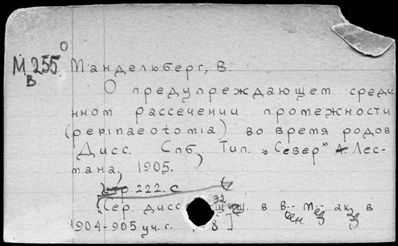 М 255 О
В
Мандельберг, В.
О предупреждающем средин
ном рассечении промежности
(perinaeotomia) во время родов
Дисс. Спб, Тип. "Север" А. Лес-
мана, 1905.
стр. 222. с
[Сер. дисс. 32 в В. м. ак. в
1904-905 уч. г. 8]